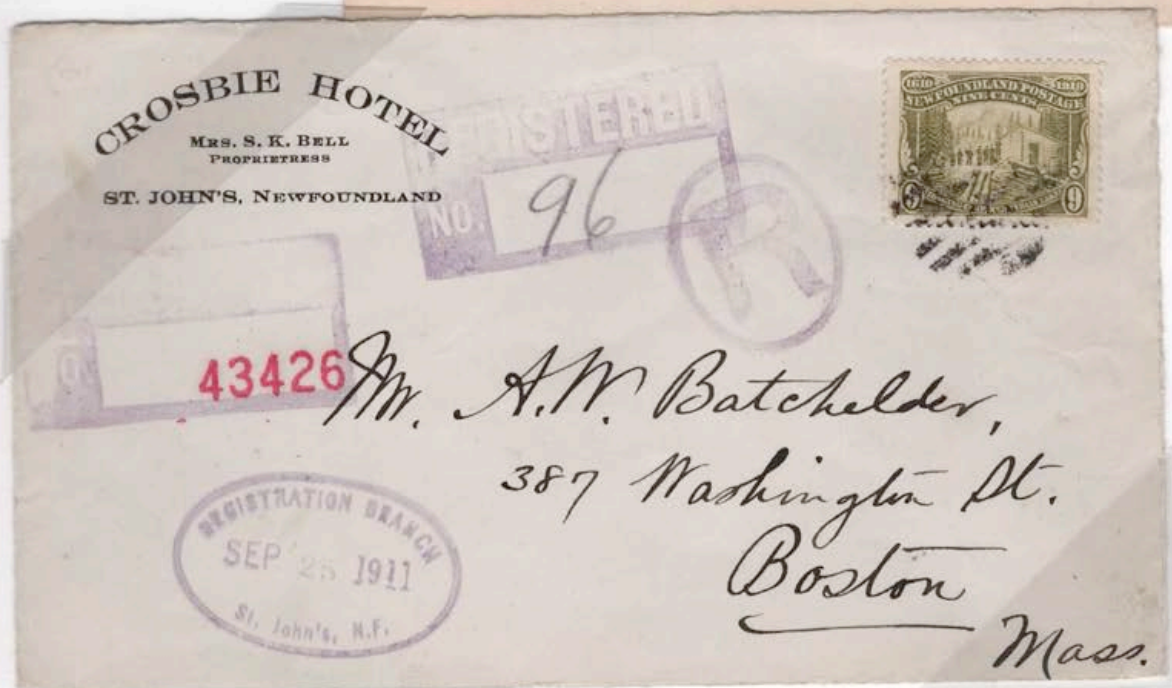 CROSBIE HOTEL
MRS. S. K. BELL
PROPRIETRESS
ST. JOHN'S, NEWFOUNDLAND
REGISTERED
NO. 96
R
1610 1910
NEWFOUNDLAND POSTAGE
NINE CENTS
9 9
43426
Mr. A. W. Batchelder,
387 Washington St.
Boston
Mass.
REGISTRATION BRANCH
SEP 25 1911
St. John's, N.F.